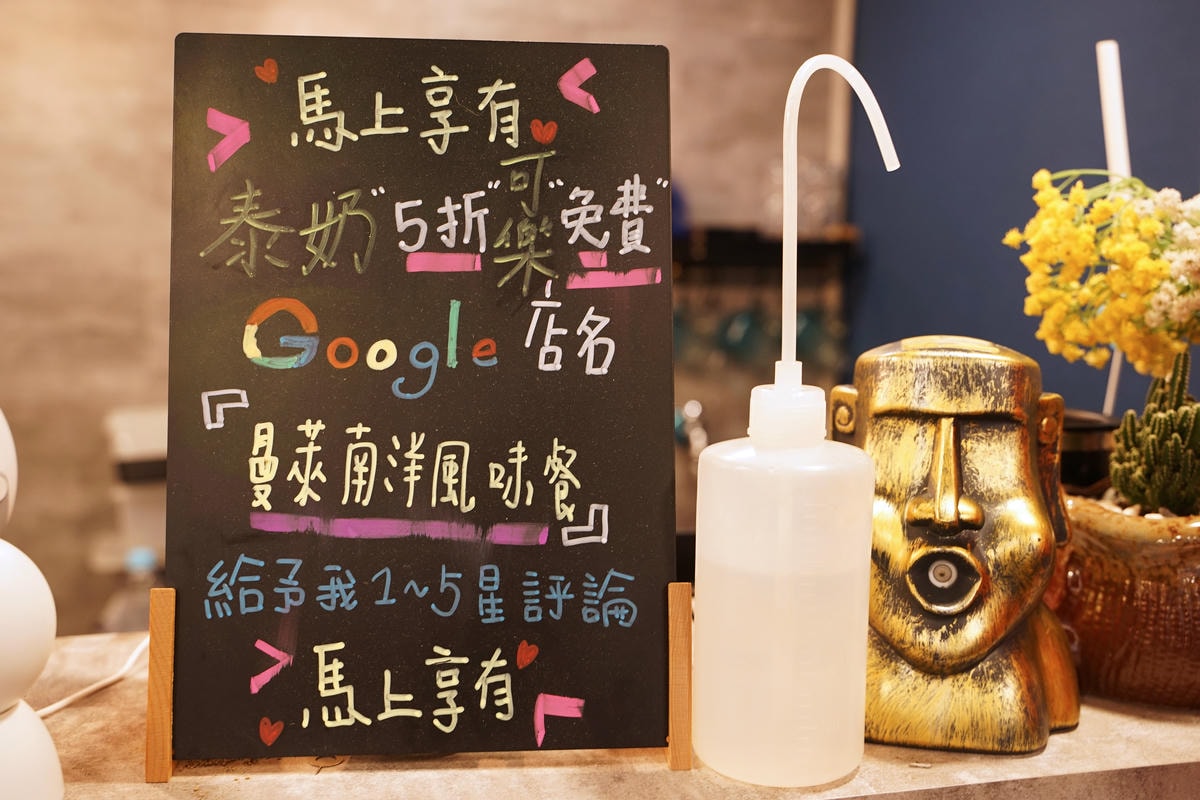 馬上享有
泰奶"5折"可樂"免費"
Google 店名
『曼萊南洋風味餐』
給予我1~5星評論
馬上享有